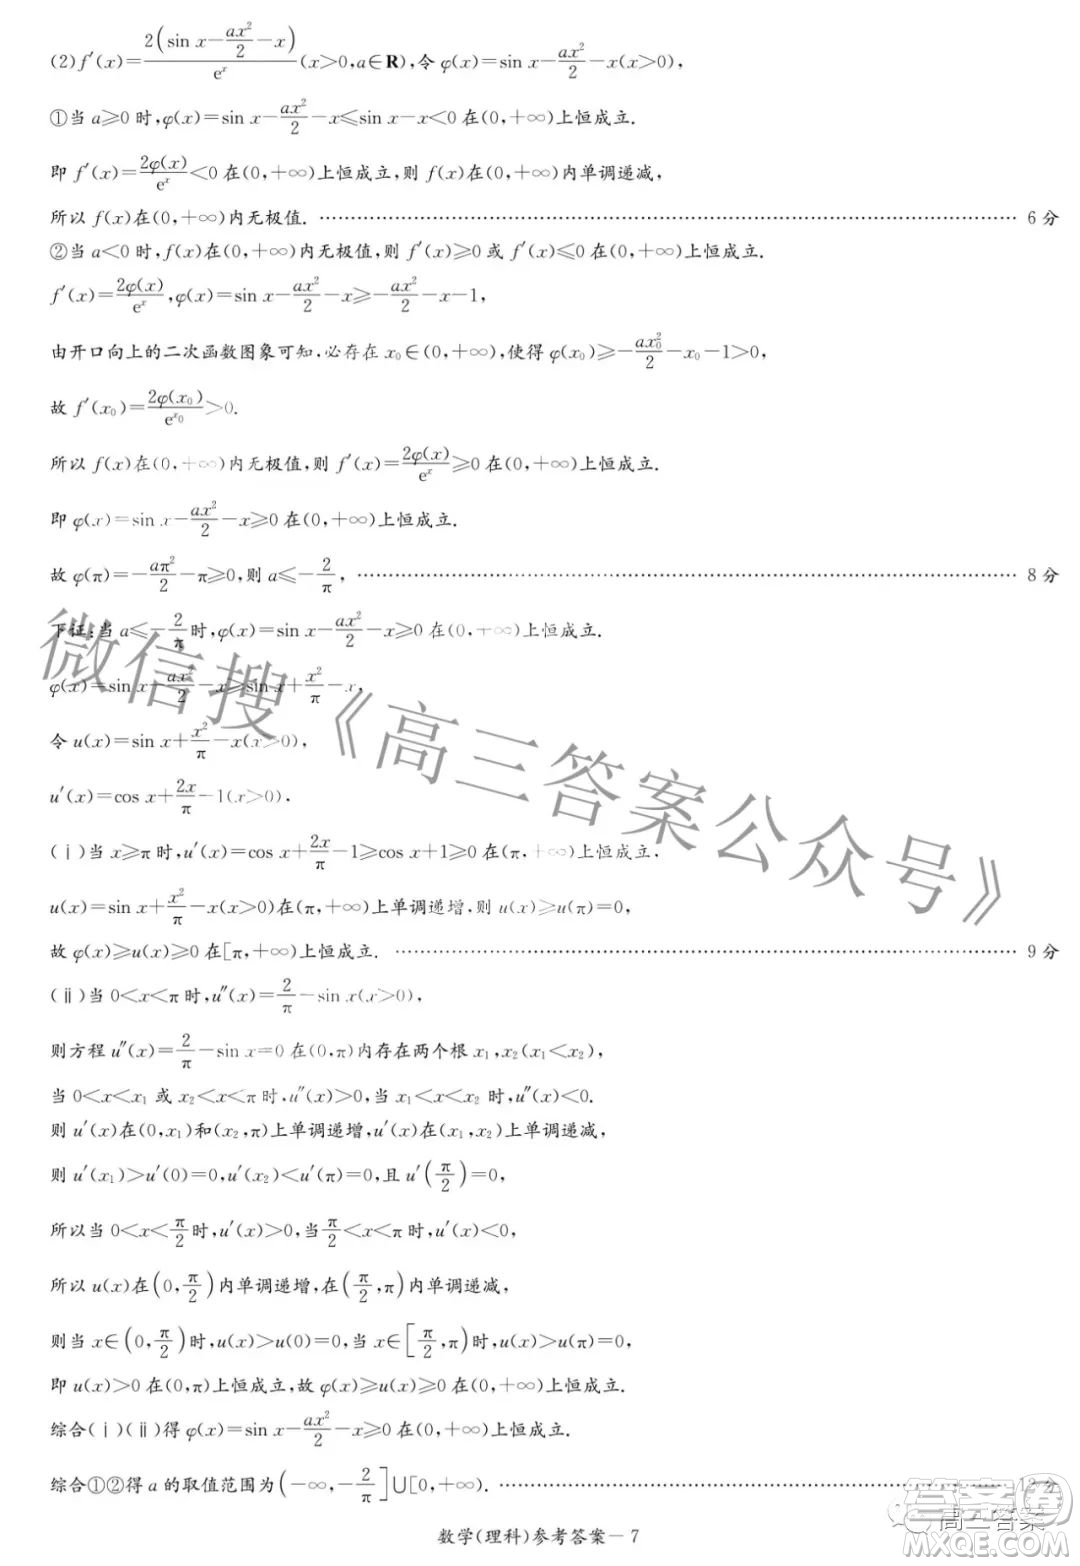 (2)f′(x)=2(sin x−ax²/2−x)/eˣ(x>0,a∈R),令 φ(x)=sin x−ax²/2−x(x>0),
①当 a≥0 时,φ(x)=sin x−ax²/2−x≤sin x−x<0 在(0,+∞)上恒成立.
即 f′(x)=2φ(x)/eˣ<0 在(0,+∞)上恒成立,则 f(x)在(0,+∞)内单调递减,
所以 f(x)在(0,+∞)内无极值. …… 6 分
②当 a<0 时,f(x)在(0,+∞)内无极值,则 f′(x)≥0 或 f′(x)≤0 在(0,+∞)上恒成立.
f′(x)=2φ(x)/eˣ,φ(x)=sin x−ax²/2−x≥−ax²/2−x−1,
由开口向上的二次函数图象可知,必存在 x₀∈(0,+∞),使得 φ(x₀)≥−ax₀²/2−x₀−1>0,
故 f′(x₀)=2φ(x₀)/e^(x₀)>0.
所以 f(x)在(0,+∞)内无极值,则 f′(x)=2φ(x)/eˣ≥0 在(0,+∞)上恒成立.
即 φ(x)=sin x−ax²/2−x≥0 在(0,+∞)上恒成立.
故 φ(π)=−aπ²/2−π≥0,则 a≤−2/π, …… 8 分
下证:当 a≤−2/π 时,φ(x)=sin x−ax²/2−x≥0 在(0,+∞)上恒成立.
φ(x)=sin x−ax²/2−x≥sin x+x²/π−x,
令 u(x)=sin x+x²/π−x(x>0),
u′(x)=cos x+2x/π−1(x>0).
(ⅰ)当 x≥π 时,u′(x)=cos x+2x/π−1≥cos x+1≥0 在(π,+∞)上恒成立,
u(x)=sin x+x²/π−x(x>0)在(π,+∞)上单调递增,则 u(x)≥u(π)=0,
故 φ(x)≥u(x)≥0 在[π,+∞)上恒成立. …… 9 分
(ⅱ)当 0<x<π 时,u″(x)=2/π−sin x(x>0),
则方程 u″(x)=2/π−sin x=0 在(0,π)内存在两个根 x₁,x₂(x₁<x₂),
当 0<x<x₁ 或 x₂<x<π 时,u″(x)>0,当 x₁<x<x₂ 时,u″(x)<0.
则 u′(x)在(0,x₁)和(x₂,π)上单调递增,u′(x)在(x₁,x₂)上单调递减,
则 u′(x₁)>u′(0)=0,u′(x₂)<u′(π)=0,且 u′(π/2)=0,
所以当 0<x<π/2 时,u′(x)>0,当 π/2<x<π 时,u′(x)<0,
所以 u(x)在(0,π/2)内单调递增,在(π/2,π)内单调递减,
则当 x∈(0,π/2)时,u(x)>u(0)=0,当 x∈[π/2,π)时,u(x)>u(π)=0,
即 u(x)>0 在(0,π)上恒成立,故 φ(x)≥u(x)≥0 在(0,+∞)上恒成立.
综合(ⅰ)(ⅱ)得 φ(x)=sin x−ax²/2−x≥0 在(0,+∞)上恒成立.
综合①②得 a 的取值范围为(−∞,−2/π]∪[0,+∞). …… 12 分
数学(理科)参考答案－7
微信搜《高三答案公众号》
答案圈
高三答案